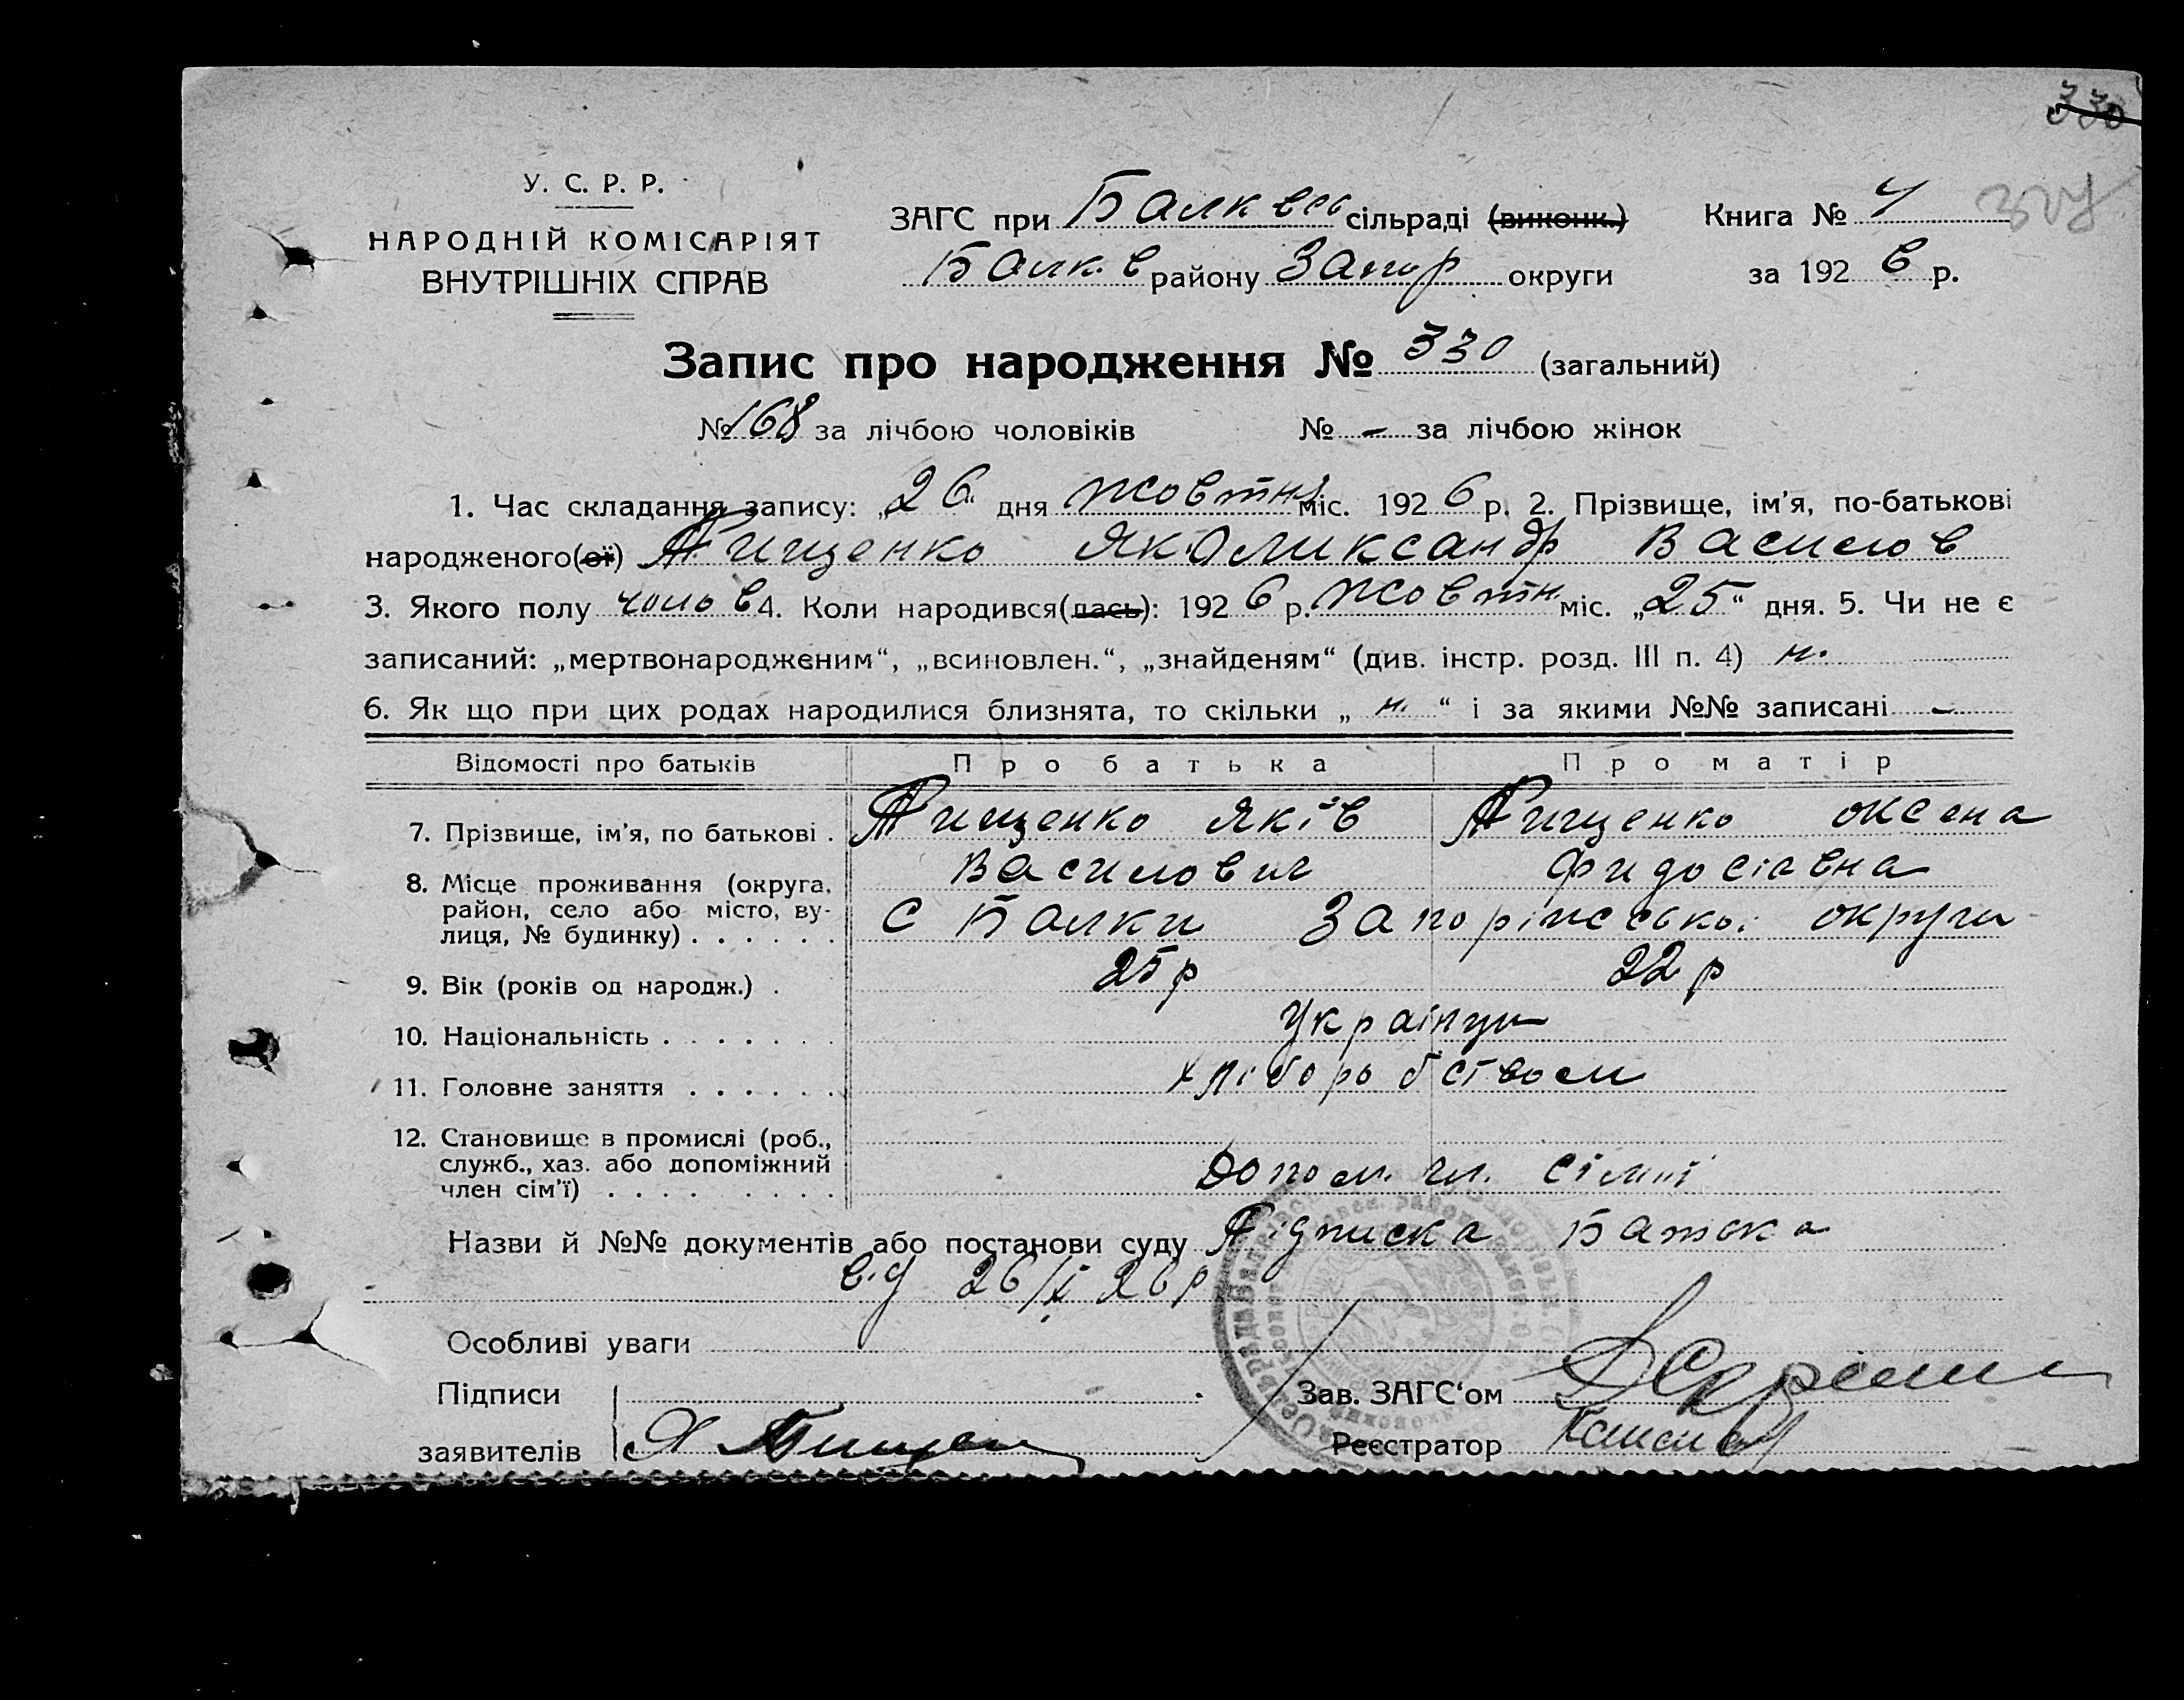 330
У. С. Р. Р.
НАРОДНІЙ КОМІСАРІЯТ
ВНУТРІШНІХ СПРАВ
ЗАГС при Балквсь сільраді (виконк.)
Балк. в району Запор округи
Книга № 4
за 1926 р.
Запис про народження № 330 (загальний)
№ 168 за лічбою чоловіків № - за лічбою жінок
1. Час складання запису: „26“ дня жовтня міс. 1926 р. 2. Прізвище, ім'я, по-батькові
народженого(ої) Тищенко Як. Олиександр Васильов
3. Якого полу чолов 4. Коли народився(лась): 1926 р. жовтн міс. „25“ дня. 5. Чи не є
записаний: „мертвонародженим“, „всиновлен.“, „знайденям“ (див. інстр. розд. III п. 4) н.
6. Як що при цих родах народилися близнята, то скільки „ н. “ і за якими №№ записані -
Відомості про батьків Про батька Про матір
7. Прізвище, ім'я, по батькові . Тищенко Яків Тищенко Оксена
Василович Фидосіевна
8. Місце проживання (округа, район, село або місто, ву-
лиця, № будинку) . . . . . . с Балки Запоріжської округи
9. Вік (років од народж.) . 25 р 22 р
10. Національність . . . . . . . Українци
11. Головне заняття . . . . . . хліборобством
12. Становище в промислі (роб.,
служб., хаз. або допоміжний
член сім'ї) . . . . . . . . Допом. чл. сімиї
Назви й №№ документів або постанови суду Підписка Батька
від 26/X 26 р
Особливі уваги
Підписи
заявителів Я Тищен
Зав. ЗАГС'ом
Реєстратор